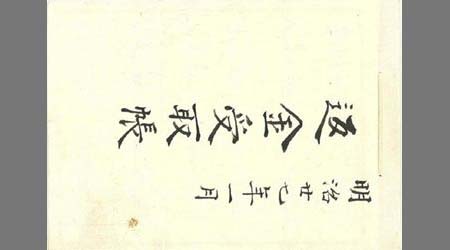 明治廿七年一月
返金受取帳